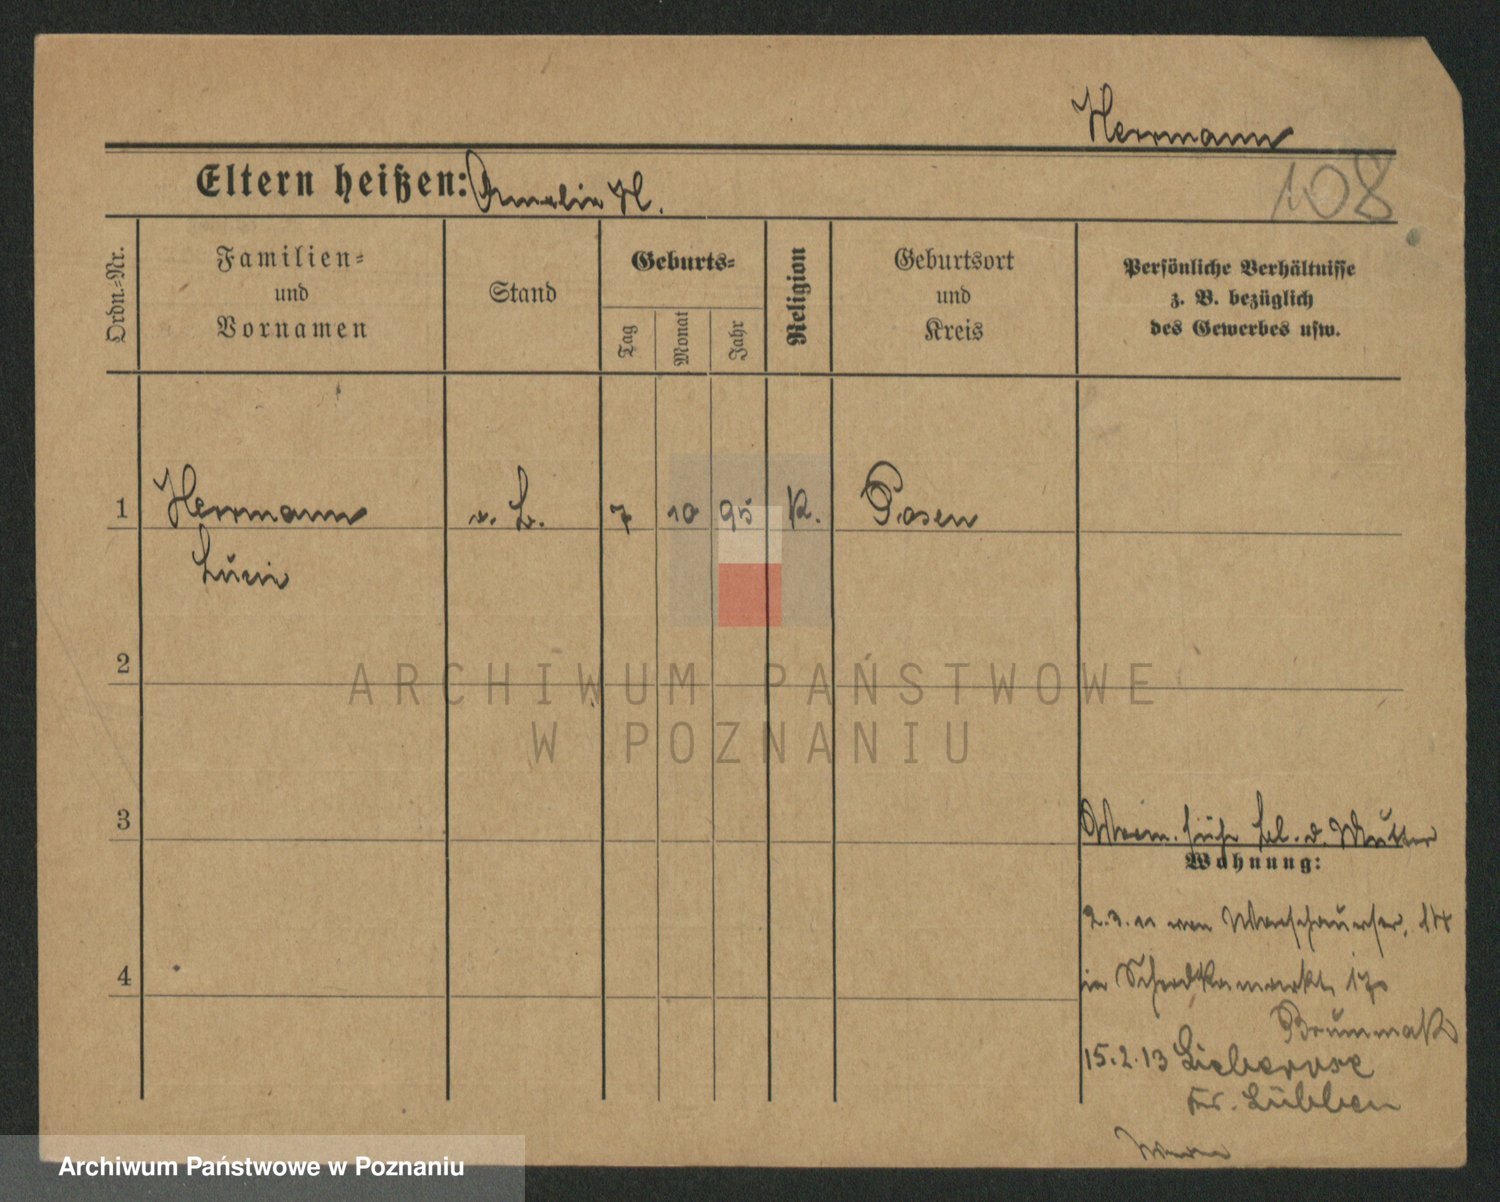 Herrmann
108
Eltern heißen: Amalie H.
Ordn.-Nr.
Familien-
und
Vornamen
Stand
Geburts-
Tag
Monat
Jahr
Religion
Geburtsort
und
Kreis
Persönliche Verhältnisse
z. B. bezüglich
des Gewerbes usw.
1
Herrmann
o. B.
7
10
95
K.
Posen
Lucie
2
3
siehe bl. d. Mutter
Wohnung:
4
2.3.11 von Warschauerstr. 14
in Schrodkamarkt 17
Brummak
15.2.13 Lieberose
Kr. Lübben
ARCHIWUM PAŃSTWOWE
W POZNANIU
Archiwum Państwowe w Poznaniu